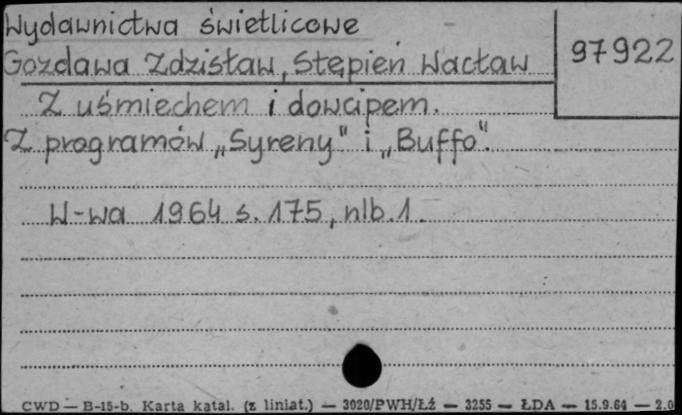 Wydawnictwa świetlicowe
97922
Gozdawa Zdzisław, Stępień Wacław
Z uśmiechem i dowcipem.
Z programów „Syreny" i „Buffo".
W-wa 1964 s. 175, nlb. 1.
CWD — B-15-b. Karta katal. (z liniat.) — 3020/PWH/Łż — 3255 — ŁDA — 15.9.61 — 2.0